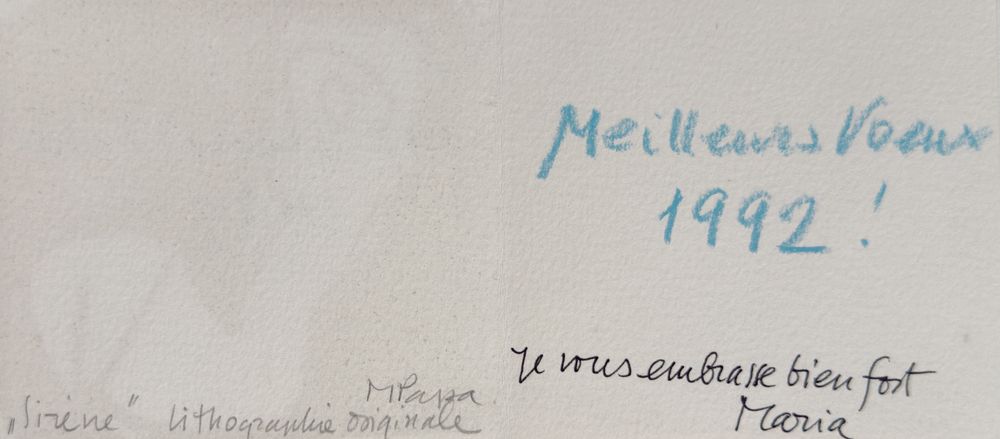 Meilleurs Voeux
1992 !
je vous embrasse bien fort
Maria
MPapa
„Sirène" lithographie originale